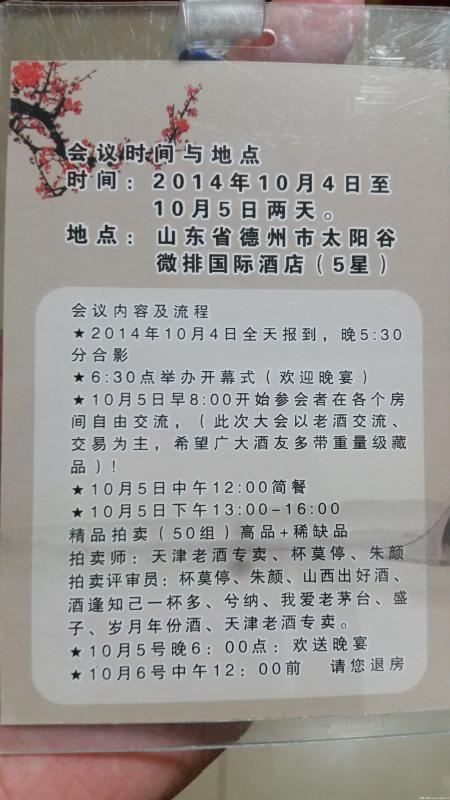 会议时间与地点
时间：2014年10月4日至
10月5日两天。
地点：山东省德州市太阳谷
微排国际酒店（5星）
会议内容及流程
★2014年10月4日全天报到，晚5:30
分合影
★6:30点举办开幕式（欢迎晚宴）
★10月5日早8:00开始参会者在各个房
间自由交流，（此次大会以老酒交流、
交易为主，希望广大酒友多带重量级藏
品）！
★10月5日中午12:00简餐
★10月5日下午13:00-16:00
精品拍卖（50组）高品+稀缺品
拍卖师：天津老酒专卖、杯莫停、朱颜
拍卖评审员：杯莫停、朱颜、山西出好酒、
酒逢知己一杯多、兮纳、我爱老茅台、盛
子、岁月年份酒、天津老酒专卖。
★10月5号晚6：00点：欢送晚宴
★10月6号中午12：00前 请您退房